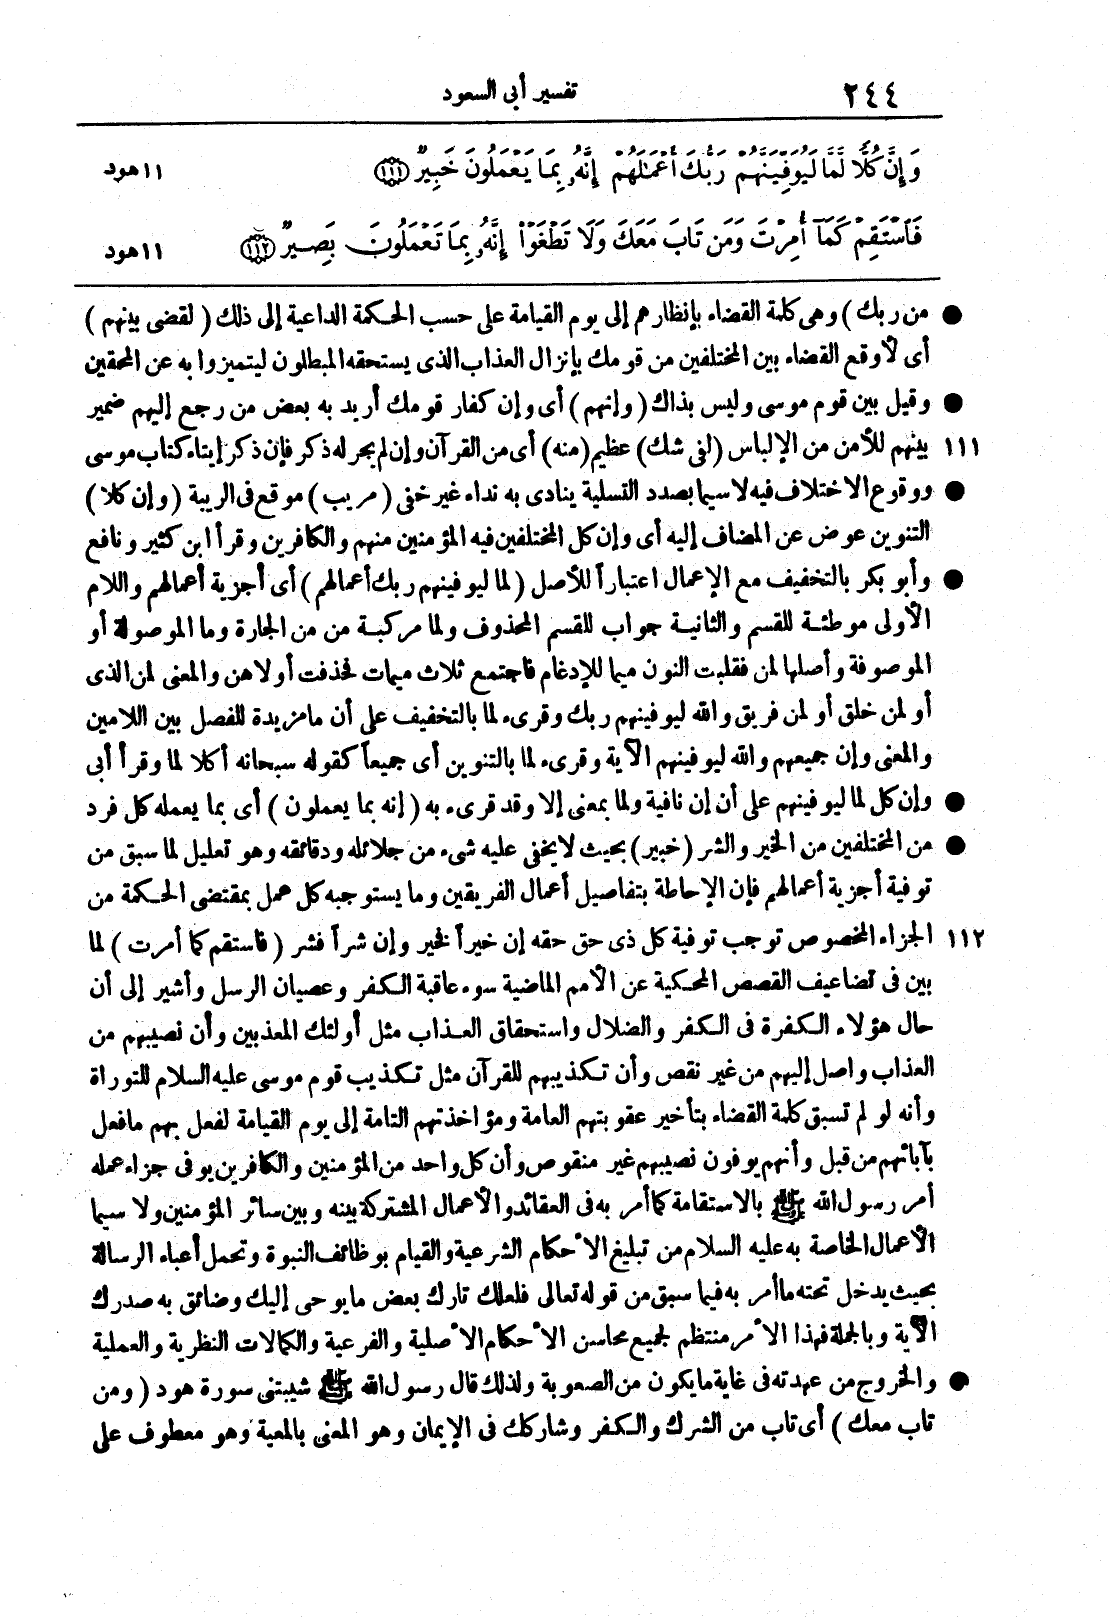 ٢٤٤
تفسير أبى السعود
وَإِنَّ كُلًّا لَّمَّا لَيُوَفِّيَنَّهُمْ رَبُّكَ أَعْمَـٰلَهُمْ إِنَّهُۥ بِمَا يَعْمَلُونَ خَبِيرٌ ﴿١١١﴾
١١ هود
فَٱسْتَقِمْ كَمَآ أُمِرْتَ وَمَن تَابَ مَعَكَ وَلَا تَطْغَوْا۟ إِنَّهُۥ بِمَا تَعْمَلُونَ بَصِيرٌ ﴿١١٢﴾
١١ هود
● من ربك ) وهى كلمة القضاء بإنظارهم إلى يوم القيامة على حسب الحكمة الداعية إلى ذلك ( لقضى بينهم )
أى لأوقع القضاء بين المختلفين من قومك بإنزال العذاب الذى يستحقه المبطلون ليتميزوا به عن المحقين
● وقيل بين قوم موسى وليس بذاك ( وإنهم ) أى وإن كفار قومك أريد به بعض من رجع إليهم ضمير
١١١ بينهم للأمن من الإلباس (لفى شك) عظيم (منه) أى من القرآن وإن لم يجر له ذكر فإن ذكر إيتاء كتاب موسى
● ووقوع الاختلاف فيه لاسيما بصدد التسلية ينادى به نداء غير خفى ( مريب ) موقع فى الريبة ( وإن كلا )
التنوين عوض عن المضاف إليه أى وإن كل المختلفين فيه المؤمنين منهم والكافرين وقرأ ابن كثير ونافع
● وأبو بكر بالتخفيف مع الإعمال اعتباراً للأصل ( لما ليوفينهم ربك أعمالهم ) أى أجزية أعمالهم واللام
الأولى موطئة للقسم والثانية جواب للقسم المحذوف ولما مركبة من من الجارة وما الموصولة أو
الموصوفة وأصلها لمن فقلبت النون ميما للإدغام فاجتمع ثلاث ميمات فحذفت أولاهن والمعنى لمن الذى
أو لمن خلق أو لمن فريق والله ليوفينهم ربك وقرىء لما بالتخفيف على أن ما مزيدة للفصل بين اللامين
والمعنى وإن جميعهم والله ليوفينهم الآية وقرىء لما بالتنوين أى جميعاً كقوله سبحانه أكلا لما وقرأ أبى
● وإن كل لما ليوفينهم على أن إن نافية ولما بمعنى إلا وقد قرىء به ( إنه بما يعملون ) أى بما يعمله كل فرد
● من المختلفين من الخير والشر ( خبير ) بحيث لا يخفى عليه شىء من جلائله ودقائقه وهو تعليل لما سبق من
توفية أجزية أعمالهم فإن الإحاطة بتفاصيل أعمال الفريقين وما يستوجبه كل عمل بمقتضى الحكمة من
١١٢ الجزاء المخصوص توجب توفية كل ذى حق حقه إن خيراً فخير وإن شراً فشر ( فاستقم كما أمرت ) لما
بين فى تضاعيف القصص المحكية عن الأمم الماضية سوء عاقبة الكفر وعصيان الرسل وأشير إلى أن
حال هؤلاء الكفرة فى الكفر والضلال واستحقاق العذاب مثل أولئك المعذبين وأن نصيبهم من
العذاب واصل إليهم من غير نقص وأن تكذيبهم للقرآن مثل تكذيب قوم موسى عليه السلام للتوراة
وأنه لو لم تسبق كلمة القضاء بتأخير عقوبتهم العامة ومؤاخذتهم التامة إلى يوم القيامة لفعل بهم ما فعل
بآبائهم من قبل وأنهم يوفون نصيبهم غير منقوص وأن كل واحد من المؤمنين والكافرين يوفى جزاء عمله
أمر رسول الله ﷺ بالاستقامة كما أمر به فى العقائد والأعمال المشتركة بينه وبين سائر المؤمنين ولا سيما
الأعمال الخاصة به عليه السلام من تبليغ الأحكام الشرعية والقيام بوظائف النبوة وتحمل أعباء الرسالة
بحيث يدخل تحته ما أمر به فيما سبق من قوله تعالى فلعلك تارك بعض ما يوحى إليك وضائق به صدرك
الآية وبالجملة فهذا الأمر منتظم لجميع محاسن الأحكام الأصلية والفرعية والكمالات النظرية والعملية
● والخروج من عهدته فى غاية ما يكون من الصعوبة ولذلك قال رسول الله ﷺ شيبتنى سورة هود ( ومن
تاب معك ) أى تاب من الشرك والكفر وشاركك فى الإيمان وهو المعنى بالمعية وهو معطوف على